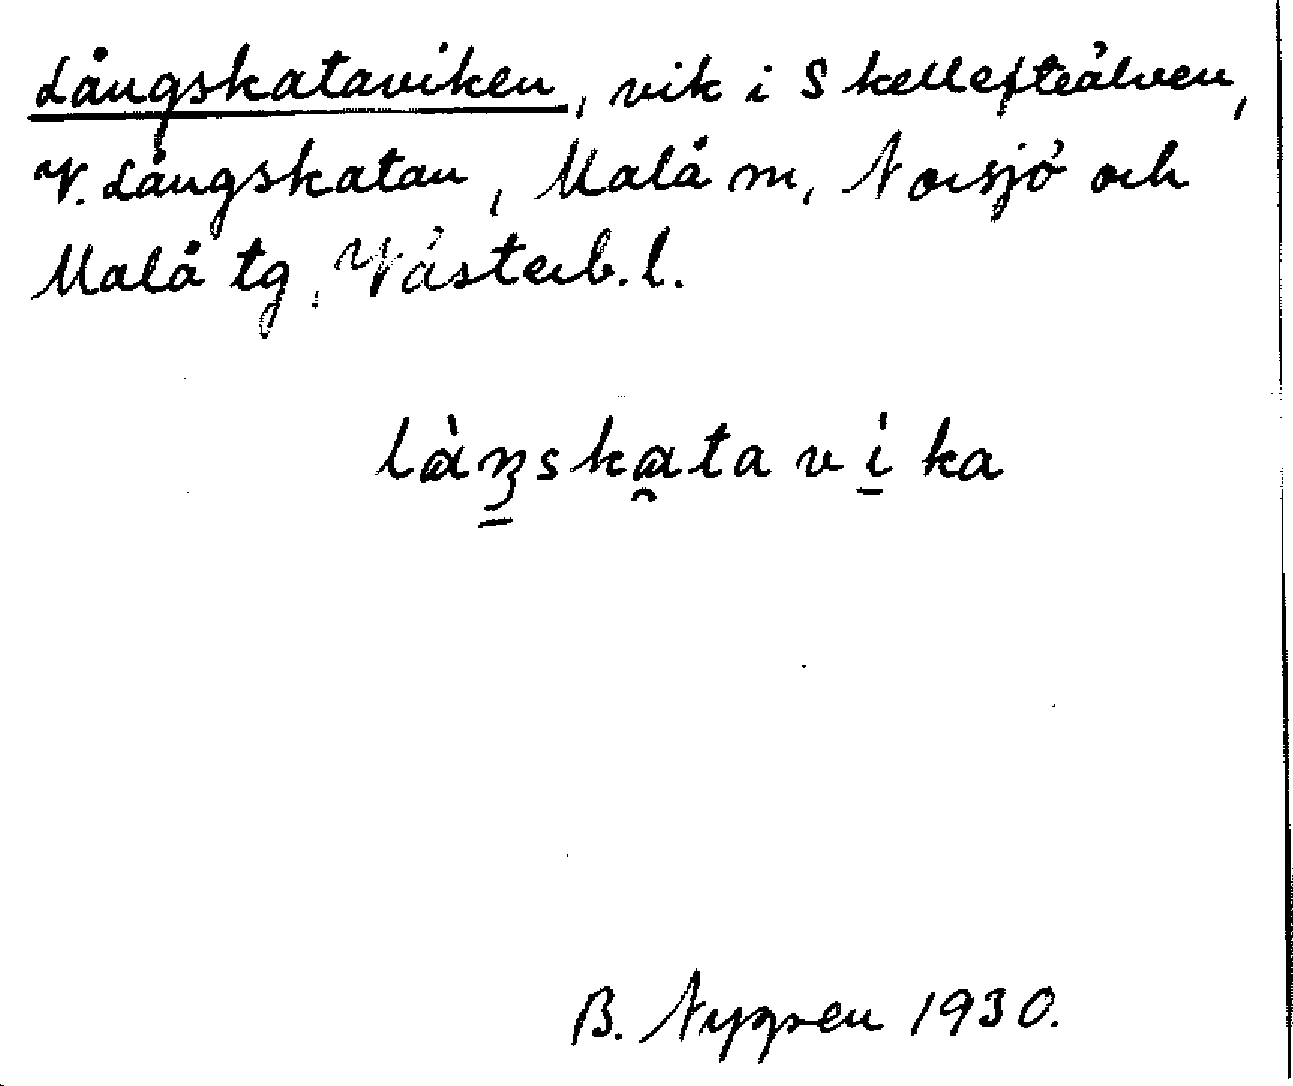 Långskataviken, vik i Skellefteälven,
V. Långskatan, Malå sn, Norsjö och
Malå tg, Västerb.l.
làŋskatavìka
B. Nygren 1930.